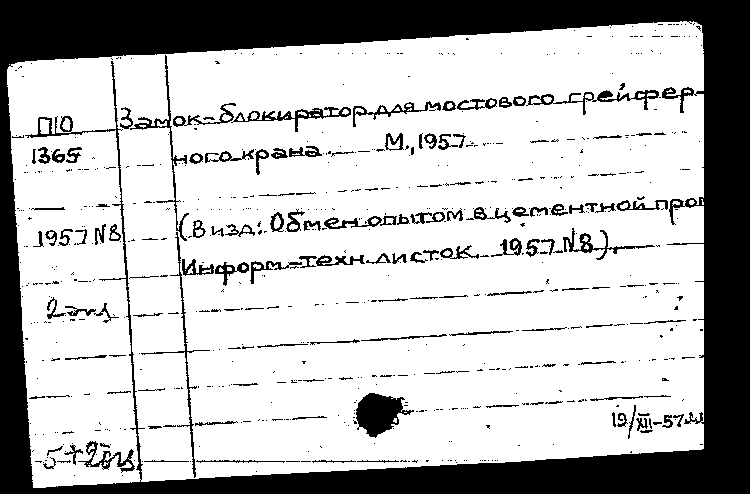 П10 Замок-блокиратор для мостового грейфер-
1365 ного крана М., 1957
1957 N8 (В изд: Обмен опытом в цементной пром
Информ-техн. листок 1957 N8).
2 экз
19/XII-57
5+2экз